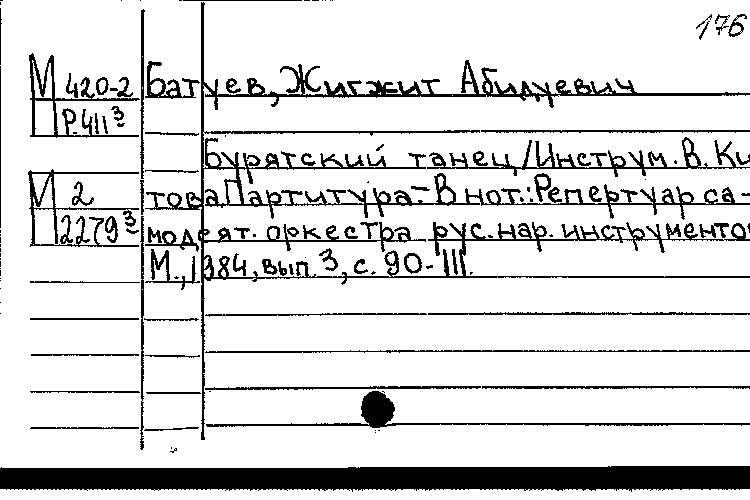 176
М 420-2 Батуев, Жигжит Абидуевич
Р.411³
Бурятский танец/Инструм. В. Ки
М 2 това. Партитура.- В нот.: Репертуар са-
2279³ модеят. оркестра рус. нар. инструменто
М., 1984, вып. 3, с. 90-111.